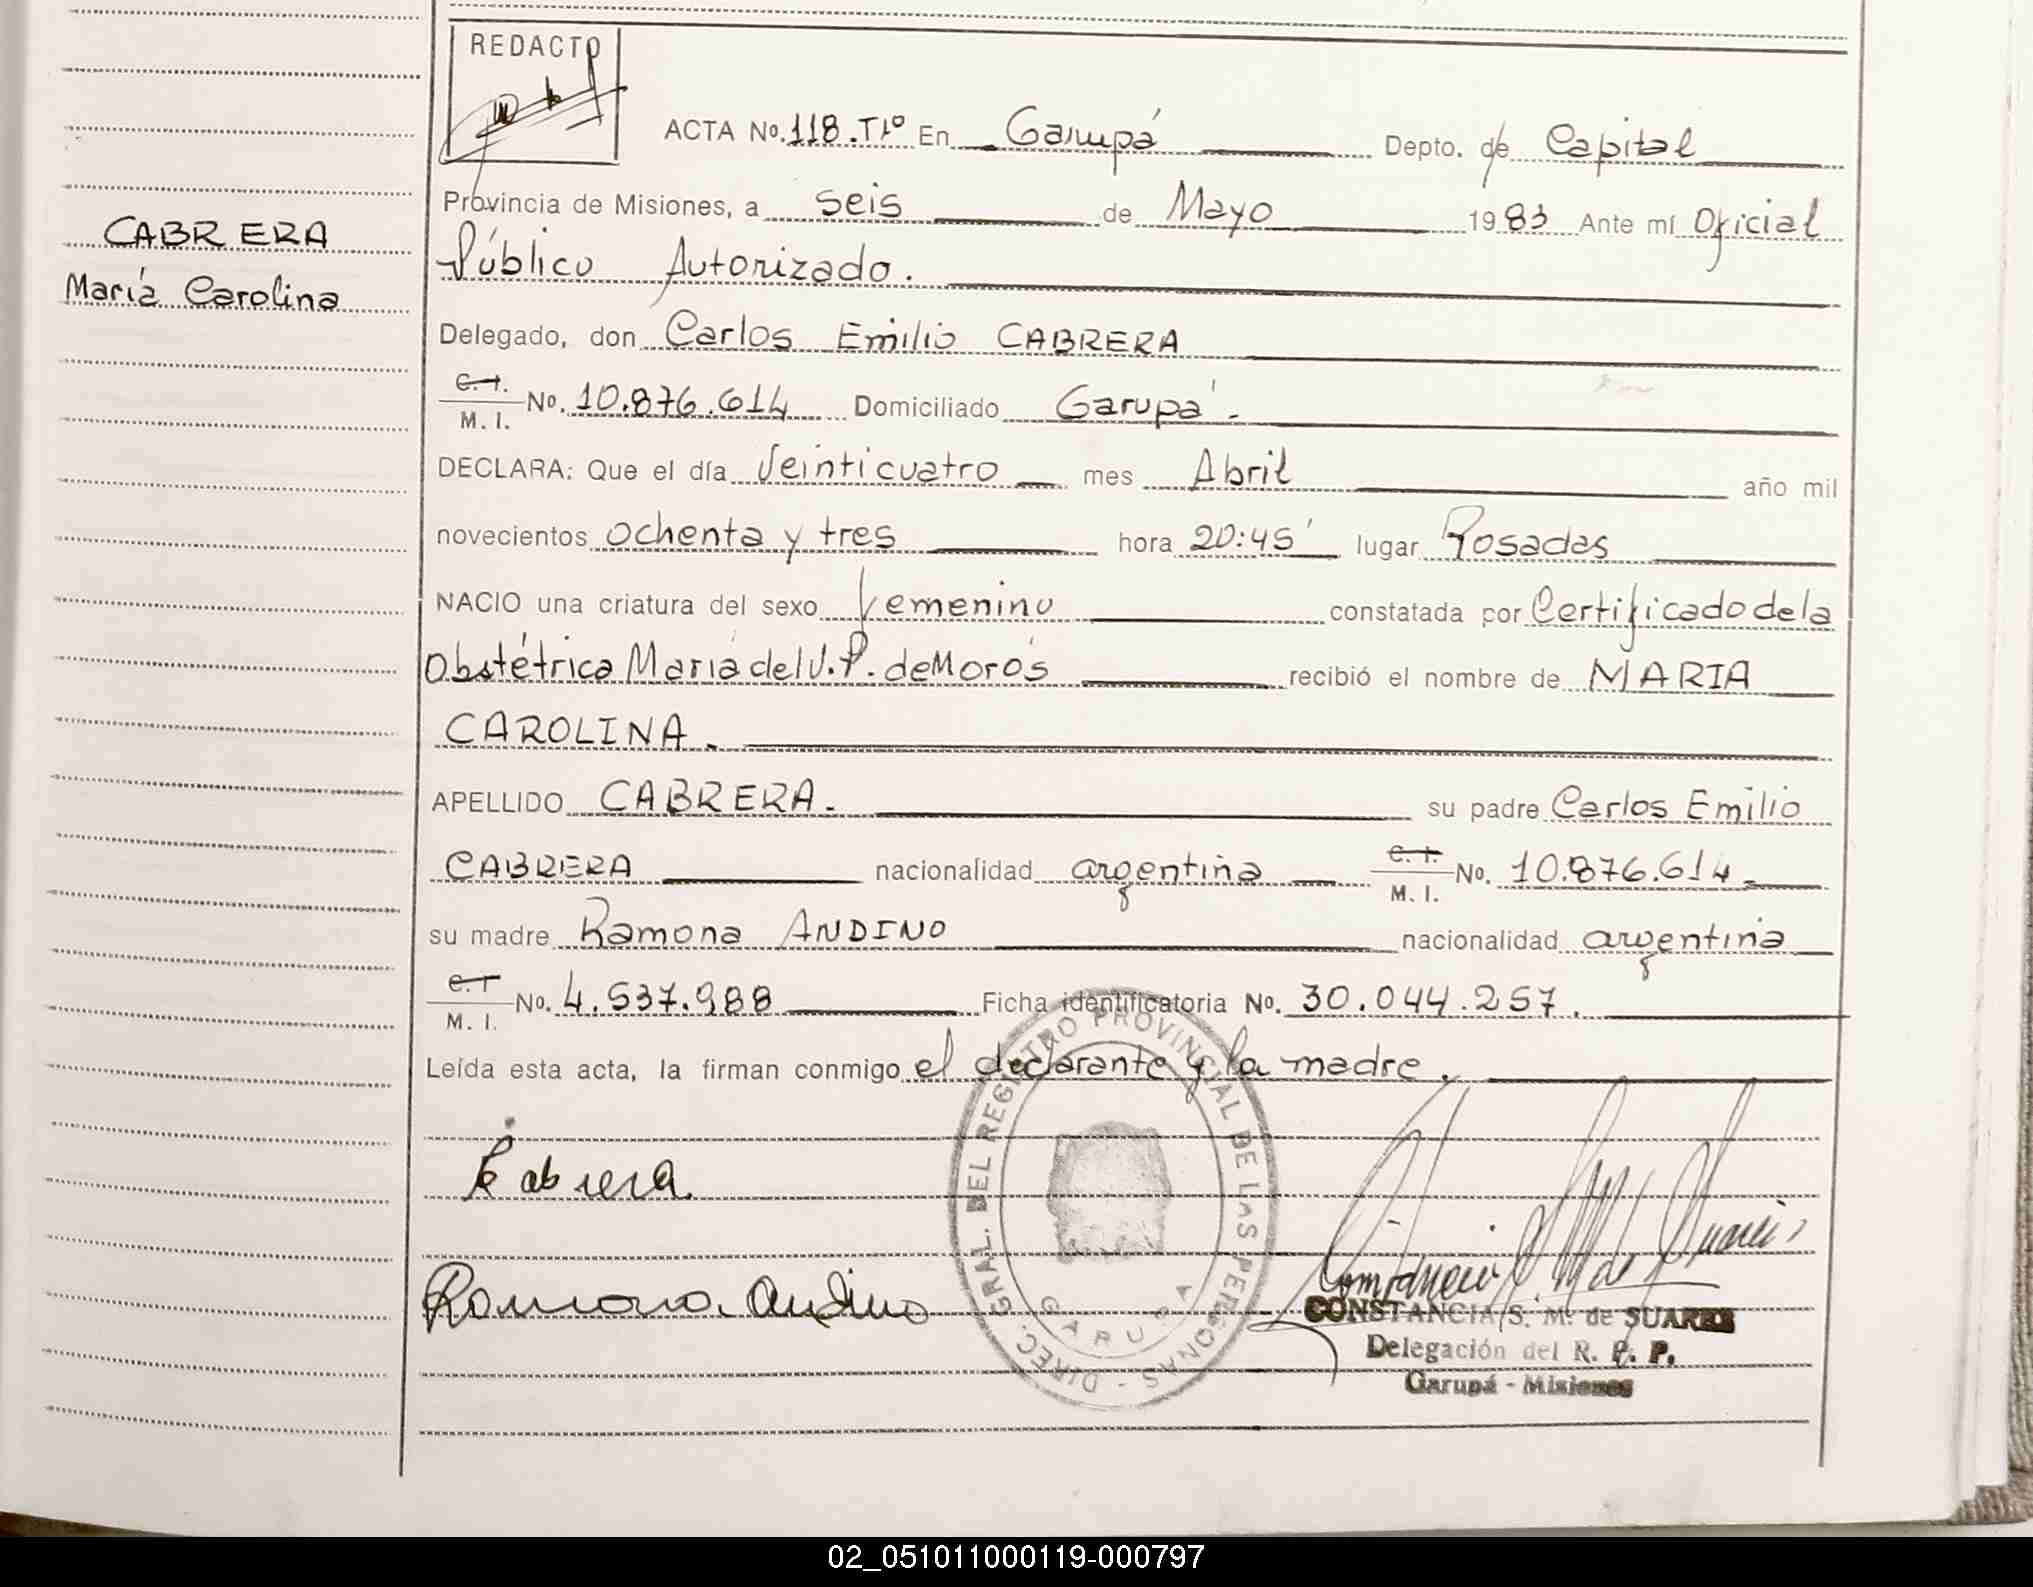 REDACTO
ACTA No. 118.TIº En Garupá Depto. de Capital
Provincia de Misiones, a seis de Mayo 1983 Ante mí Oficial
CABRERA
Público Autorizado.
María Carolina
Delegado, don Carlos Emilio CABRERA
C. I. M. I. No. 10.876.614 Domiciliado Garupá.
DECLARA: Que el día Veinticuatro mes Abril año mil
novecientos ochenta y tres hora 20:45' lugar Posadas
NACIO una criatura del sexo femenino constatada por Certificado de la
Obstétrica María del V. P. de Morós recibió el nombre de MARIA
CAROLINA.
APELLIDO CABRERA. su padre Carlos Emilio
CABRERA nacionalidad argentina C. I. M. I. No. 10.876.614
su madre Ramona ANDINO nacionalidad argentina
C. I M. I. No. 4.537.988 Ficha identificatoria No. 30.044.257.
Leída esta acta, la firman conmigo el declarante y la madre.
Cabrera
Ramona Andino
DIREC. GRAL. DEL REGISTRO PROVINCIAL DE LAS PERSONAS -
GARUPA
CONSTANCIA S. M. de SUAREZ
Delegación del R. P. P.
Garupá - Misiones
02_051011000119-000797